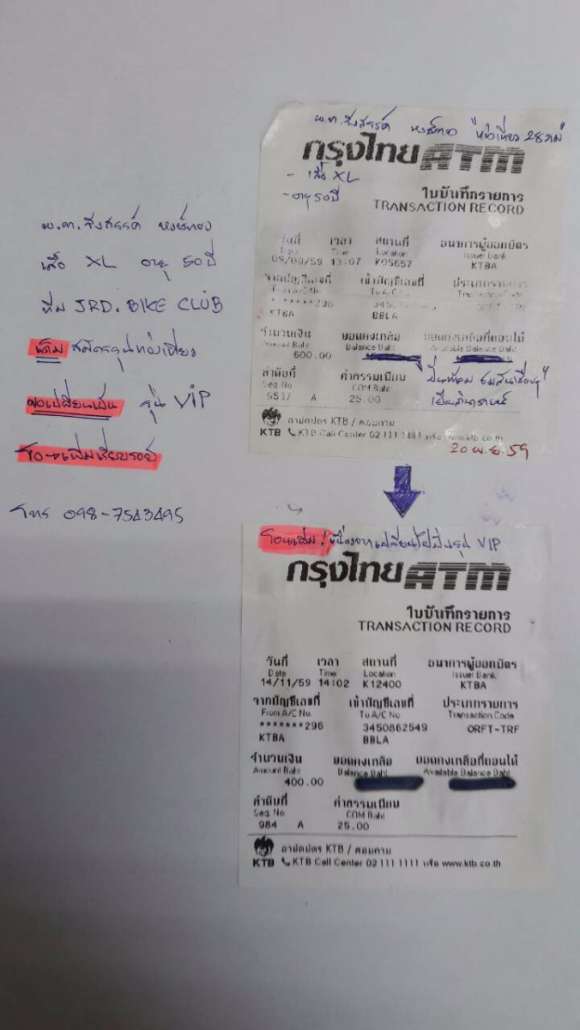 พ.ต.รังสรรค์ หงษ์ทอง
เสื้อ XL อายุ 50 ปี
ทีม JRD. BIKE CLUB
เดิม สมัครรุ่นท่องเที่ยว
ขอเปลี่ยนเป็น รุ่น VIP
โอนเพิ่มเรียบร้อย
โทร 098-7543495
พ.ต.รังสรรค์ หงษ์ทอง
กรุงไทย ATM
- เสื้อ XL
- อายุ 50 ปี
ใบบันทึกรายการ
TRANSACTION RECORD
วันที่ เวลา สถานที่ ธนาคารผู้ออกบัตร
Date Time Location Issuer Bank
/59 13:07 K05657 KTBA
จากบัญชีเลขที่ เข้าบัญชีเลขที่ ประเภทรายการ
******296
KTBA BBLA
จำนวนเงิน ยอดคงเหลือ ยอดคงเหลือที่ถอนได้
Amount Baht Balance Baht Available Balance Baht
600.00
ลำดับที่ ค่าธรรมเนียม
Seq No COM Baht
A 25.00
อายัดบัตร KTB / สอบถาม
KTB Call Center 02 111 1111 หรือ www.ktb.co.th
20 พ.ย. 59
โอนเพิ่ม! เนื่องจากเปลี่ยนไปเป็นรุ่น VIP
กรุงไทย ATM
ใบบันทึกรายการ
TRANSACTION RECORD
วันที่ เวลา สถานที่ ธนาคารผู้ออกบัตร
Date Time Location Issuer Bank
14/11/59 14:02 K12400 KTBA
จากบัญชีเลขที่ เข้าบัญชีเลขที่ ประเภทรายการ
From A/C No. To A/C No. Transaction Code
*******296 3450862549 ORFT-TRF
KTBA BBLA
จำนวนเงิน ยอดคงเหลือ ยอดคงเหลือที่ถอนได้
Amount Baht Balance Baht Available Balance Baht
400.00
ลำดับที่ ค่าธรรมเนียม
Seq No COM Baht
984 A 25.00
อายัดบัตร KTB / สอบถาม
KTB Call Center 02 111 1111 หรือ www.ktb.co.th